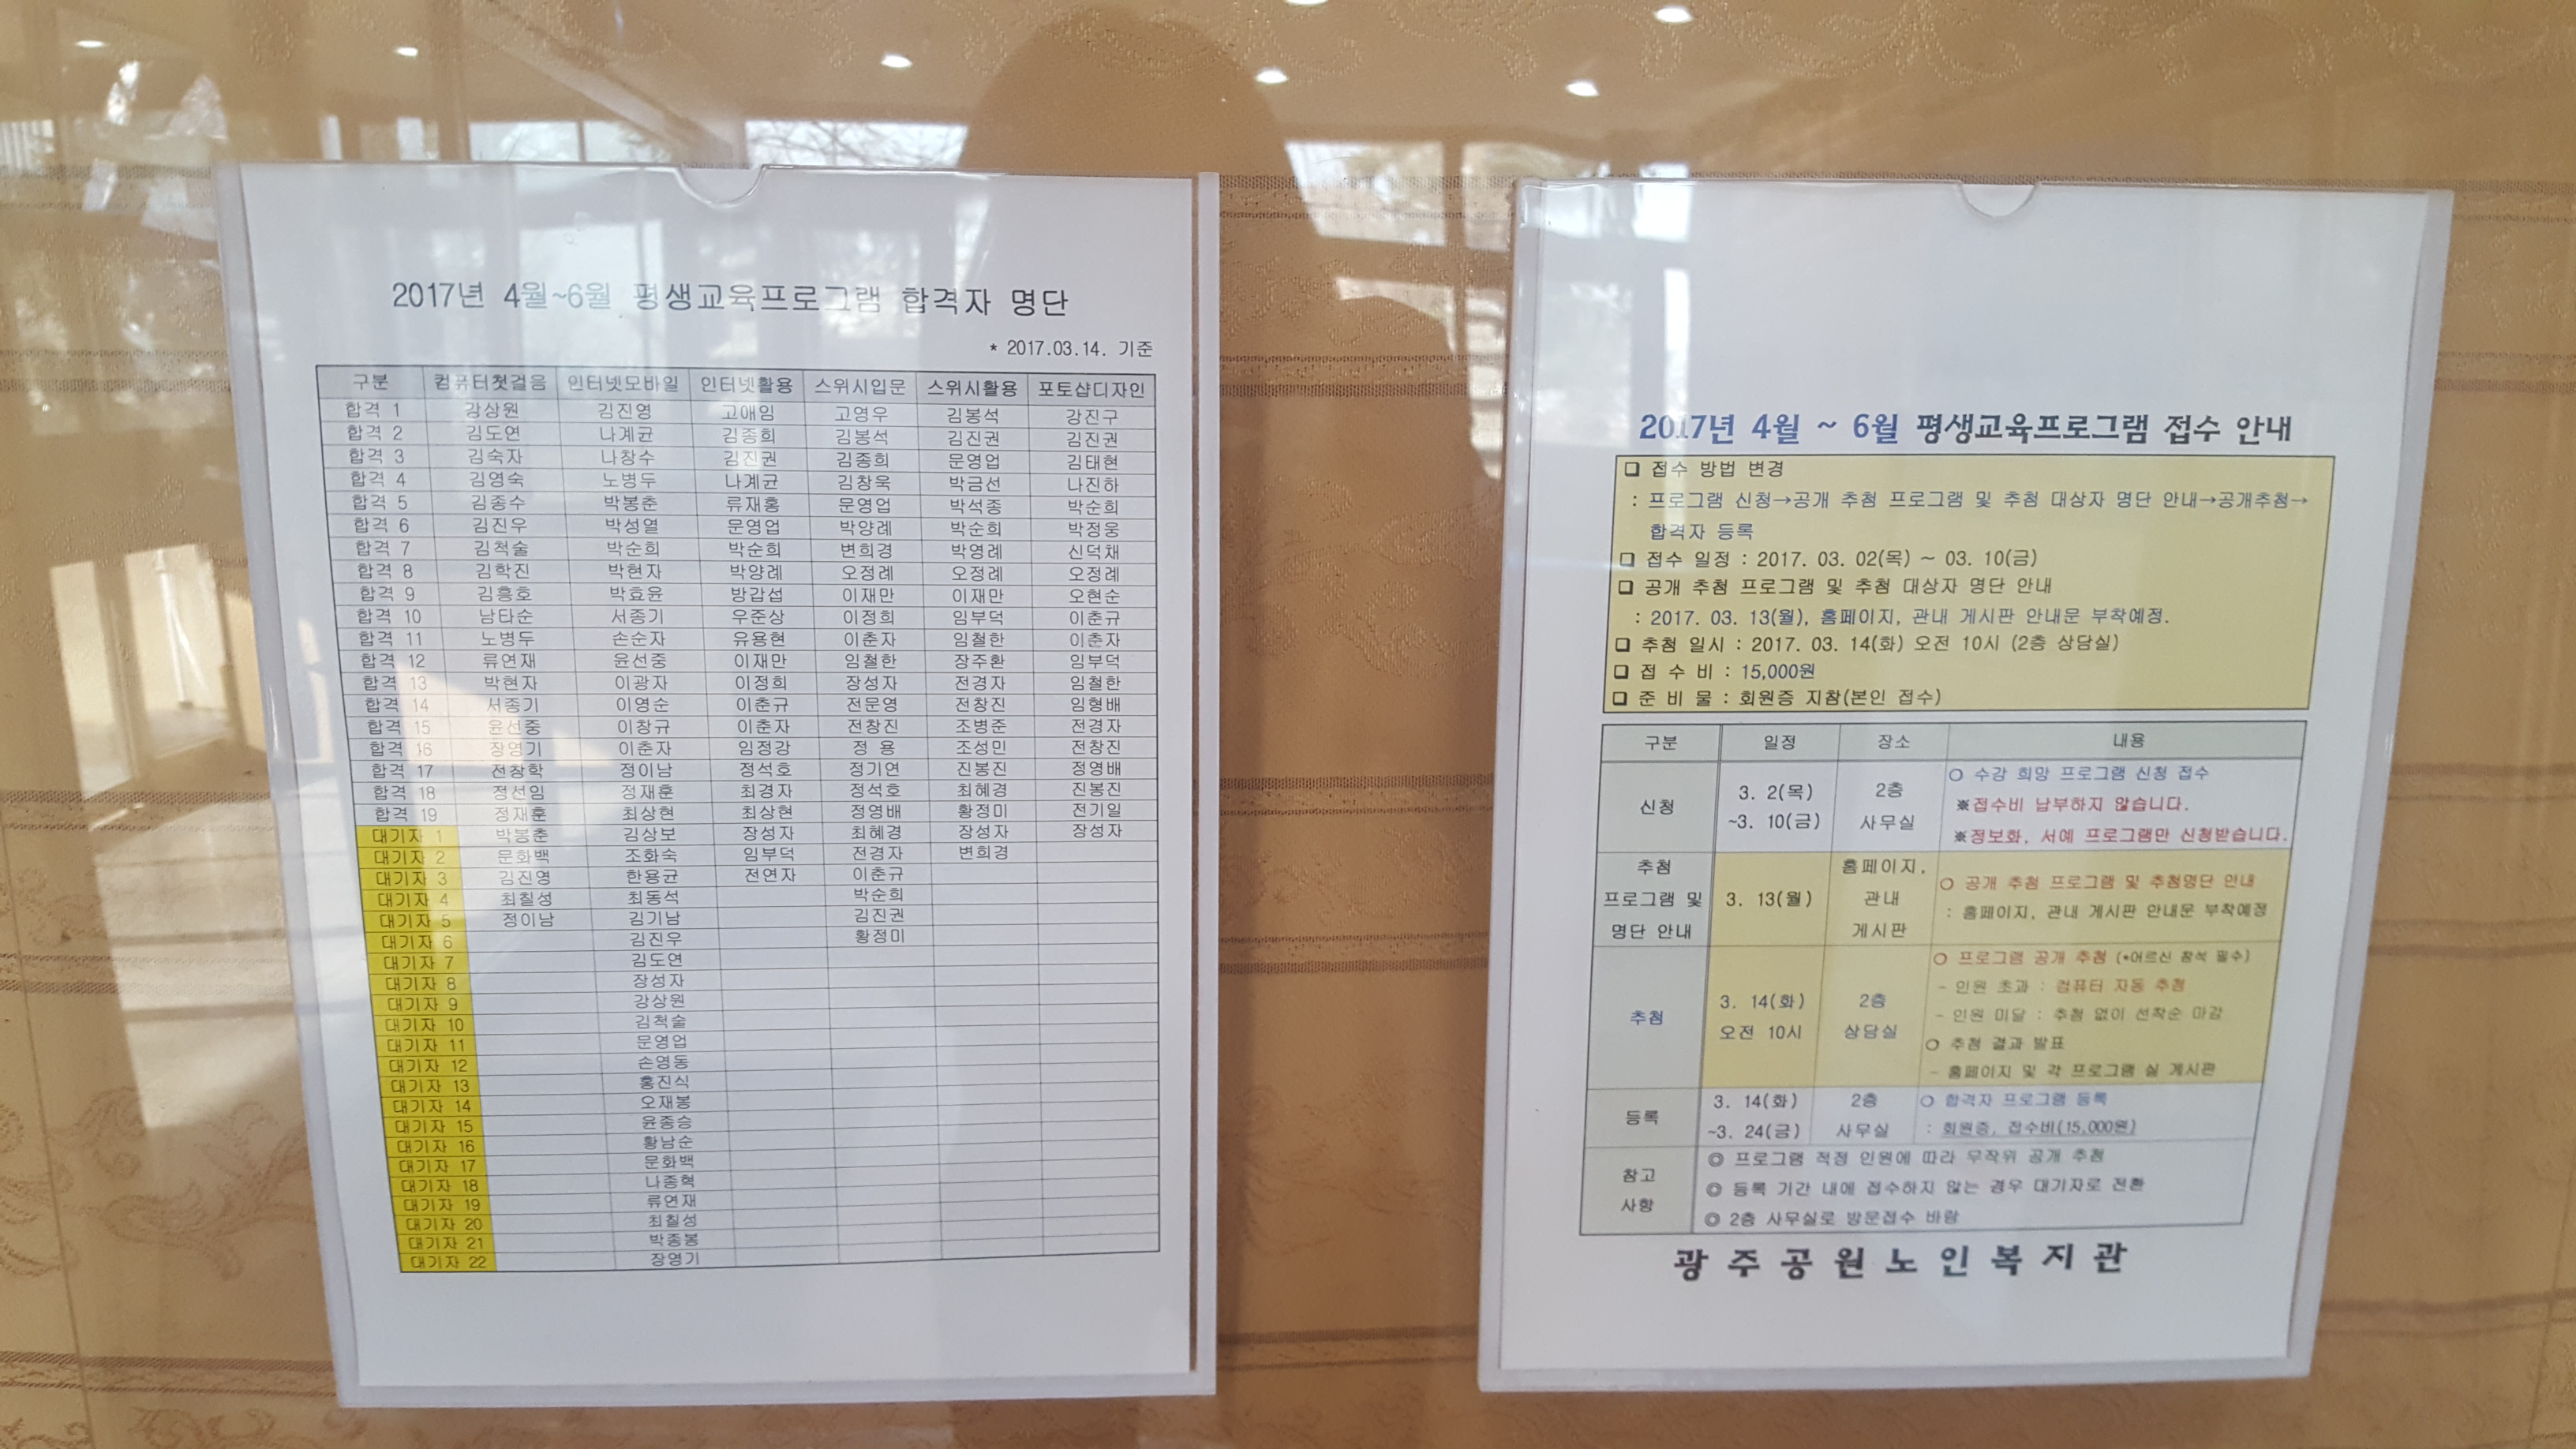 2017년 4월~6월 평생교육프로그램 합격자 명단
* 2017.03.14. 기준
구분 컴퓨터첫걸음 인터넷모바일 인터넷활용 스위시입문 스위시활용 포토샵디자인
합격 1 강상원 김진영 고애임 고영우 김봉석 강진구
합격 2 김도연 나계균 김종희 김봉석 김진권 김진권
합격 3 김숙자 나창수 김진권 김종희 문영업 김태현
합격 4 김영숙 노병두 나계균 김창욱 박금선 나진하
합격 5 김종수 박봉춘 류재홍 문영업 박석종 박순희
합격 6 김진우 박성열 문영업 박양례 박순희 박정웅
합격 7 김척술 박순희 박순희 변희경 박영례 신덕채
합격 8 김학진 박현자 박양례 오정례 오정례 오정례
합격 9 김흥호 박효윤 방갑섭 이재만 이재만 오현순
합격 10 남타순 서종기 우준상 이정희 임부덕 이춘규
합격 11 노병두 손순자 유용현 이춘자 임철한 이춘자
합격 12 류연재 윤선중 이재만 임철한 장주환 임부덕
합격 13 박현자 이광자 이정희 장성자 전경자 임철한
합격 14 서종기 이영순 이춘규 전문영 전창진 임형배
합격 15 윤선중 이창규 이춘자 전창진 조병준 전경자
합격 16 장영기 이춘자 임정강 정 용 조성민 전창진
합격 17 전창학 정이남 정석호 정기연 진봉진 정영배
합격 18 정선임 정재훈 최경자 정석호 최혜경 진봉진
합격 19 정재훈 최상현 최상현 정영배 황정미 전기일
대기자 1 박봉춘 김상보 장성자 최혜경 장성자 장성자
대기자 2 문화백 조화숙 임부덕 전경자 변희경
대기자 3 김진영 한용균 전연자 이춘규
대기자 4 최칠성 최동석 박순희
대기자 5 정이남 김기남 김진권
대기자 6 김진우 황정미
대기자 7 김도연
대기자 8 장성자
대기자 9 강상원
대기자 10 김척술
대기자 11 문영업
대기자 12 손영동
대기자 13 홍진식
대기자 14 오재봉
대기자 15 윤종승
대기자 16 황남순
대기자 17 문화백
대기자 18 나종혁
대기자 19 류연재
대기자 20 최칠성
대기자 21 박종봉
대기자 22 장영기
2017년 4월 ~ 6월 평생교육프로그램 접수 안내
❑ 접수 방법 변경
: 프로그램 신청→공개 추첨 프로그램 및 추첨 대상자 명단 안내→공개추첨→
합격자 등록
❑ 접수 일정 : 2017. 03. 02(목) ~ 03. 10(금)
❑ 공개 추첨 프로그램 및 추첨 대상자 명단 안내
: 2017. 03. 13(월), 홈페이지, 관내 게시판 안내문 부착예정.
❑ 추첨 일시 : 2017. 03. 14(화) 오전 10시 (2층 상담실)
❑ 접 수 비 : 15,000원
❑ 준 비 물 : 회원증 지참(본인 접수)
구분 일정 장소 내용
신청 3. 2(목) ~3. 10(금) 2층 사무실 ○ 수강 희망 프로그램 신청 접수
※접수비 납부하지 않습니다.
※정보화, 서예 프로그램만 신청받습니다.
추첨 프로그램 및 명단 안내 3. 13(월) 홈페이지, 관내 게시판 ○ 공개 추첨 프로그램 및 추첨명단 안내
: 홈페이지, 관내 게시판 안내문 부착예정
추첨 3. 14(화) 오전 10시 2층 상담실 ○ 프로그램 공개 추첨 (*어르신 참석 필수)
- 인원 초과 : 컴퓨터 자동 추첨
- 인원 미달 : 추첨 없이 선착순 마감
○ 추첨 결과 발표
- 홈페이지 및 각 프로그램 실 게시판
등록 3. 14(화) ~3. 24(금) 2층 사무실 ○ 합격자 프로그램 등록
: 회원증, 접수비(15,000원)
참고 사항 ◎ 프로그램 적정 인원에 따라 무작위 공개 추첨
◎ 등록 기간 내에 접수하지 않는 경우 대기자로 전환
◎ 2층 사무실로 방문접수 바람
광주공원노인복지관